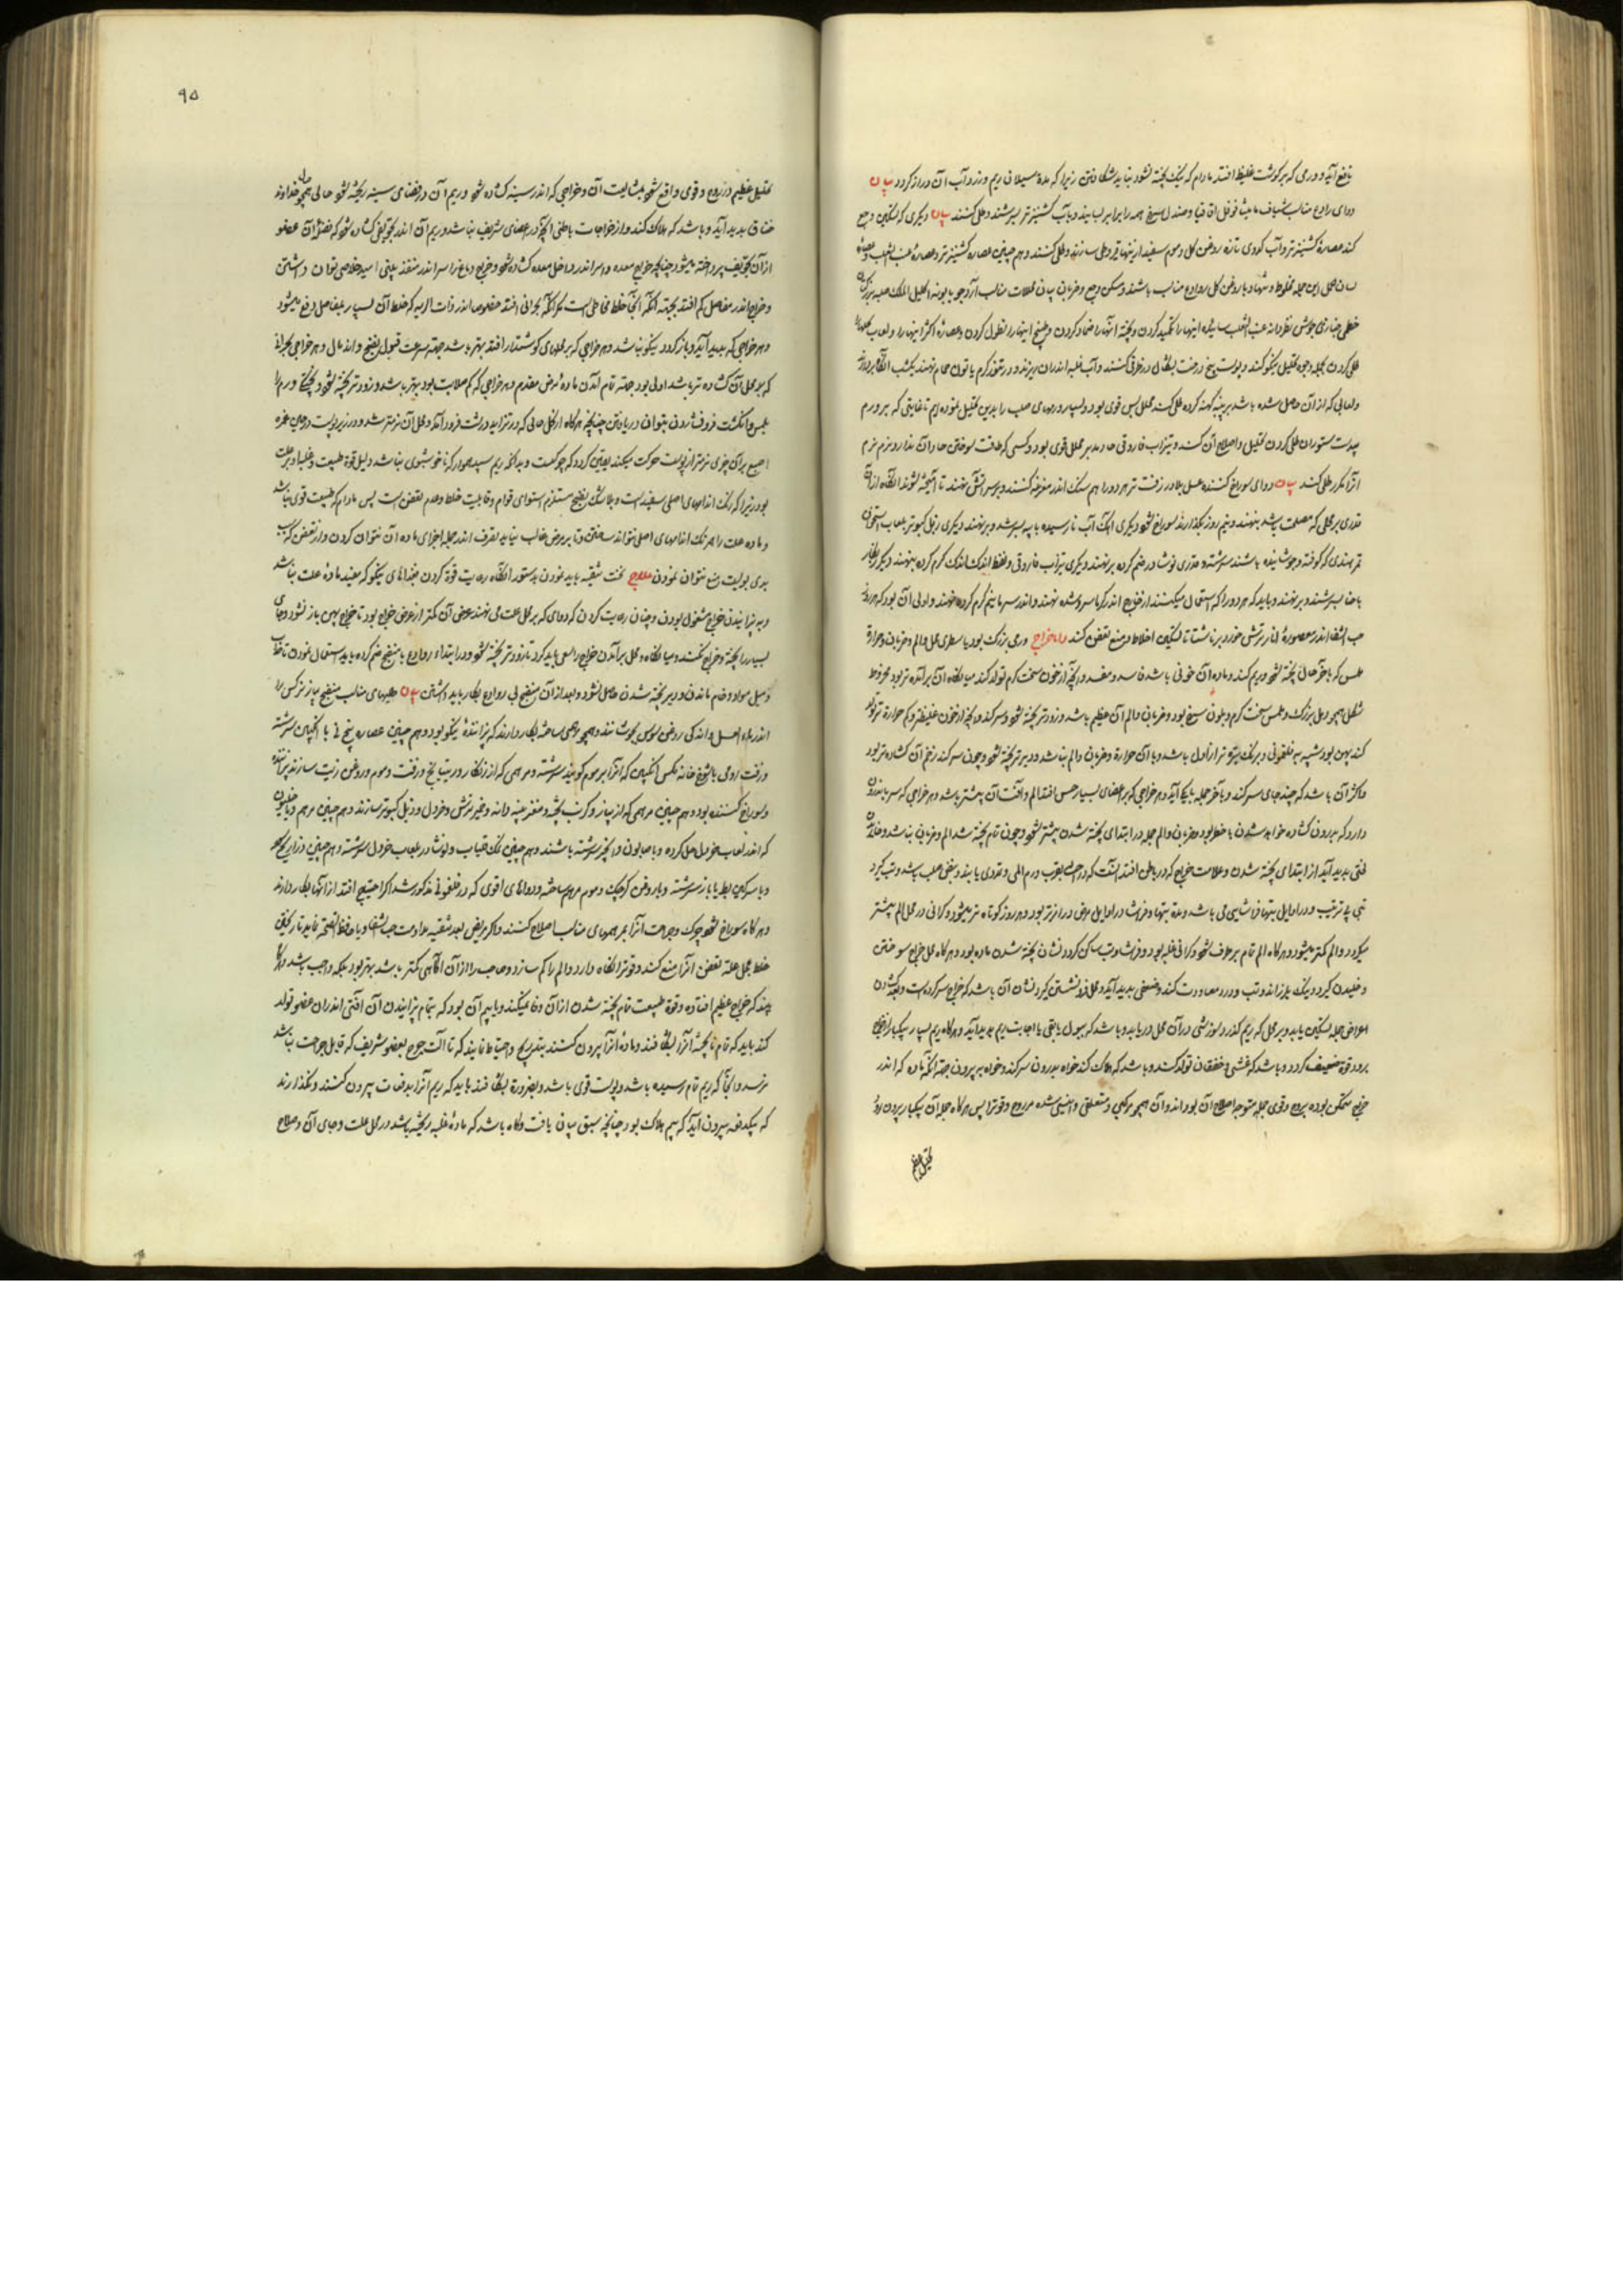 نافع آید و ورمی که بر گوشت غلیظ افتد مادام که نیک پخته نشود نباید شکافتن زیرا که مدة سیلان ریم و زرداب آن دراز گردد
دوای رادع مناسب شیاف مامیثا فوفل اقاقیا و صندل سرخ همه را برابر بسایند و بآب کشنیز تر بسرشند و طلی کنند دیگری که تسکین وجع
کند عصارهٔ کشنیز تر و آب کدوی تازه روغن گل و موم سفید از اینها قیروطی سازند و طلی کنند و هم چنین عصاره کشنیز تر و عصارهٔ عنب الثعلب
این جمله مخلوط و تنها و با روغن گل روادع مناسب باشند و مسکن وجع و ضربان محللات مناسب آرد جو بابونه اکلیل الملک حلبه
اینها را تکمید کردن و پخته آنها را ضماد کردن و طبیخ اینها را نطول کردن و عصارهٔ اکثر اینها را و لعاب
طلی کردن بجمله وجوه تحلیل نیکو کند و پوست بیخ درخت
ولعابی که از آن حاصل شده باشد بر پنبه کهنه کرده طلی کنند محللی بس قوی بود و بسیار ورمهای صلب را بدین تحلیل نموده ایم تا غایتی که بر ورم
دست ستوران طلی کردن تحلیل و اصلاح آن کند و تیزاب فاروقی حاد مدبر محللی قوی بود و کسی که طاقت سوختن حاد آن ندارد نرم نرم
آنرا مکرر طلی کند دوای سوراخ کننده عسل بلادر زفت تر هر دو را هم سنگ اندر مغرفه کنند و بر سر آتش نهند تا آمیخته شوند آنگاه از آن
قدری بر محلی که مصلحت باشد بنهند و نیم روز بگذارند سوراخ شود دیگری آهک آب نارسیده با پیه بسرشد و برنهند دیگری زبل کبوتر بلعاب
تمر هندی که کوفته و جوشانیده باشند سرشته و قدری نوشادر ضم کرده برنهند دیگری تیزاب فاروقی و نفط اندک اندک گرم کرده بنهند
بسرشند و برنهند و باید که هر دوا را که استعمال میکنند از خارج اندر گرما سرد شده نهند و اندر سرما نیم گرم کرده نهند و اولی آن بود که هر روز
حب الشفا اندر معصورهٔ انار ترش خورد بر ناشتا تا تسکین اخلاط و منع تعفن کند اما خراج ورمی بزرگ بود با سطری محل و الم و ضربان و حرارة
ملمس که بآخر حال پخته شود و ریم کند و ماده آن خونی باشد فاسد و مفسد و آنچه از خون سخت گرم تولد کند میانگاه آن برآمده تر بود مخروط
شکل همچو دمل بزرگ و ملمس سخت گرم و بلون سرخ بود و ضربان و الم آن عظیم باشد و زودتر پخته شود و سر کند و آنچه از خون غلیظتر و کم حرارة تر تولد
کند پهن بود شبیه به فلغمونی و برنگ تیره تر از اول باشد و با آن حرارة و ضربان و الم نباشد و دیرتر پخته شود و چون سر کند زخم آن گشاده تر بود
و اکثر آن باشد که چند جای سر کند و بآخر جمله با یکی آید و هر خراجی که بر اعضای بسیار حس افتد الم و آفت آن بیشتر باشد و هر خراجی که سر باندرون
دارد که بدرون گشاده خواهد شدن با خطر بود و ضربان و الم جمله در ابتدای پخته شدن بیشتر شود و چون تمام پخته شد الم و ضربان نباشد و
پدید آید از ابتدای پخته شدن و علامت خراج که در باطن افتد آنست که در احشا بقرب ورم المی و تمددی یابند و نبض صلب باشد و تب گیرد
تبی بی ترتیب و در اوایل تبها فراشایی می باشد و مدة تبها و فراشا در اوایل مرض درازتر بود و هر روز کوتاه تر میشود و گرانی در محل الم بیشتر
میگردد و الم کمتر میشود و هرگاه الم تمام برطرف شود و گرانی غلبه بود و فراشا و تب ساکن گردد نشان پخته شدن ماده بود و هرگاه محل خراج سوختن
و خلیدن گیرد و نیک بلرزاند و تب و درد معاودت کند و ضعفی پدید آید و محل فرو نشستن گیرد نشان آن باشد که خراج سر کرده است و بعد گشادن
اعراض جمله تسکین یابد و بر محلی که ریم گذرد سوزشی در آن محل دریابد و باشد که ببول یا بقی یا اجابت ریم پدید آید و هرگاه ریم بسیار بیکبار از خراج
برود قوة ضعیف گردد و باشد که غشی و خفقان تولد کند و باشد که هلاک کند خواه بدرون سر کند و خواه به بیرون جهة آنکه ماده که اندر
خراج متمکن بوده بروح و قوی جمله متوجه اصلاح آن بوده اند و آن همچو مرکبی و متعلقی و انیسی شده مر روح و قوی را پس هرگاه جمله آن بیکبار بیرون رود
تحلیل عظیم
۹۵
تحلیل عظیم در روح و قوی واقع شود بمشایعت آن و خراجی که اندر سینه گشاده شود و ریم آن در فضای سینه ریخته شود حالی همچو حال خداوند
خناق پدید آید و باشد که هلاک کند و از خراجات باطنی آنچه در اعضای شریف نباشد و ریم آن اندر تجویفی گشاده شود که فضلهٔ آن عضو
از آن تجویف پرداخته میشود چنانچه خراج معده و امعا اندر داخل معده گشاده شود و خراج دماغ را سر اندر منفذ بینی امید خلاصی توان داشتن
و خراج اندر مفاصل کم افتد بجهة آنکه آنجا خلط مخاطی است مگر آنکه بحرانی افتد خصوصا اندر ذات الریه که خلط آن بسیار بمفاصل دفع میشود
و هر خراجی که پدید آید و باز گردد نیکو نباشد و هر خراجی که بر عضوهای گوشتدار افتد بهتر باشد جهة سرعت قبول نضج و اندمال و هر خراجی بحرانی
که بود محل آن گشاده تر باشد اولی بود جهة تمام آمدن ماده مرض مقدم و هر خراجی که کم صلابت بود بهتر باشد و زودتر پخته شود و پختگی ورم را
بلمس و انگشت فرو فشردن بتوان دریافتن چنانچه هرگاه از کل حالی که در تزاید و درشت فرود آید و محل آن نرمتر شد و در زیر پوست در جای غمز
اصبع بر آن چیزی نرمتر از پوست حرکت میکند یقین گردد که چرکست و بدانکه ریم سپید هموار که ناخوشبوی نباشد دلیل قوة طبیعت و غلبه او بر علت
بود زیرا که رنگ اندامهای اصلی سفید است و بلاشک نضج مستلزم استوای قوام و قابلیت خلط و عدم تعفن است پس مادام که طبیعت قوی نباشد
و ماده علت را همرنگ اندامهای اصلی نتواند ساختن و تا بر مرض غالب نیاید تصرف اندر جمله اجزای ماده آن نتوان کردن و از تعفن که سبب
بدی بویست منع نتوان نمودن علاج نخست تنقیه باید نمودن بدستور آنگاه رعایت قوة کردن بغذاهای نیکو که مفید مادهٔ علت نباشد
و به پزانیدن خراج مشغول بودن و چنان رعایت کردن که دوای که بر محل علت می نهند عرض آن کمتر از عرض خراج بود تا خراج پهن باز نشود و جای
بسیار را پخته و خراج نکند و میانگاه و محل برآمدن خراج را سعی باید کرد تا زودتر پخته شود و در ابتداء روادع با منضج ضم کرده باید استعمال نمودن تا
و میل مواد و خام ماندن و دیر پخته شدن حاصل نشود و بعد از آن منضج بی روادع بکار باید داشتن طلیهای مناسب منضج پیاز نرگس را
اندر ماء العسل و اندکی روغن سوسن بجوشانند و همچو مرهمی ساخته بکار دارند که پزاننده نیکو بود و هم چنین عصاره بیخ نی با انگبین سرشته
و زفت رومی با شوخ خانه مگس انگبین که آنرا برموم گویند سرشته و مرهمی که از زنگار و ریتیانج و زفت و موم و روغن زیت سازند پزاننده
و سوراخ کننده بود و هم چنین مرهمی که از پیاز و کرنب پخته و مغز پنبه دانه و خمیر ترش و خردل و زبل کبوتر سازند و هم چنین مرهم دیاخیلون
که اندر لعاب خردل حل کرده و با صابون و انجیر سرشته باشند و هم چنین نمک قلیاب و نوشادر بلعاب خردل سرشته و هم چنین ذراریح
و با سرگین بط یا باز سرشته و با روغن کرچک و موم مرهم ساخته و دواهای اقوی که در فلغمونی مذکور شد اگر احتیاج افتد از آنها بکار دارند
و هرگاه سوراخ شود چرک و جراحت آنرا بمرهمهای مناسب اصلاح کنند و اگر مریض بعد تنقیه مداومت حب الشفا و یا حافظ الصحه نماید تا
خلط بمحل علة تعفن آنرا منع کند و قوة را نگاه دارد و الم را کم سازد و صاحب را از آن آگاهی کمتر باشد بهتر بود بلکه واجب باشد و هرگاه
بیند که خراج عظیم افتاده و قوة طبیعت تمام پخته شدن از آن وفا نمیکند و یا بیم آن بود که تا تمام پزانیدن آن آفتی اندر آن عضو تولد
کند باید که تمام ناپخته آنرا بشکافند و مادهٔ آنرا بیرون کنند بتدریج و احتیاط نمایند که تا آلت جرح بعضو شریف که قابل جراحت نباشد
نرسد و آنجا که ریم تمام رسیده باشد و پوست قوی باشد و بضرورة بشکافند باید که ریم آنرا بدفعات بیرون کنند و نگذارند
که بیکدفعه بیرون آید که بیم هلاک بود چنانچه سبق بیان یافت و گاه باشد که مادهٔ غلبه ریخته باشد در محل علت و جای آن و صلاح